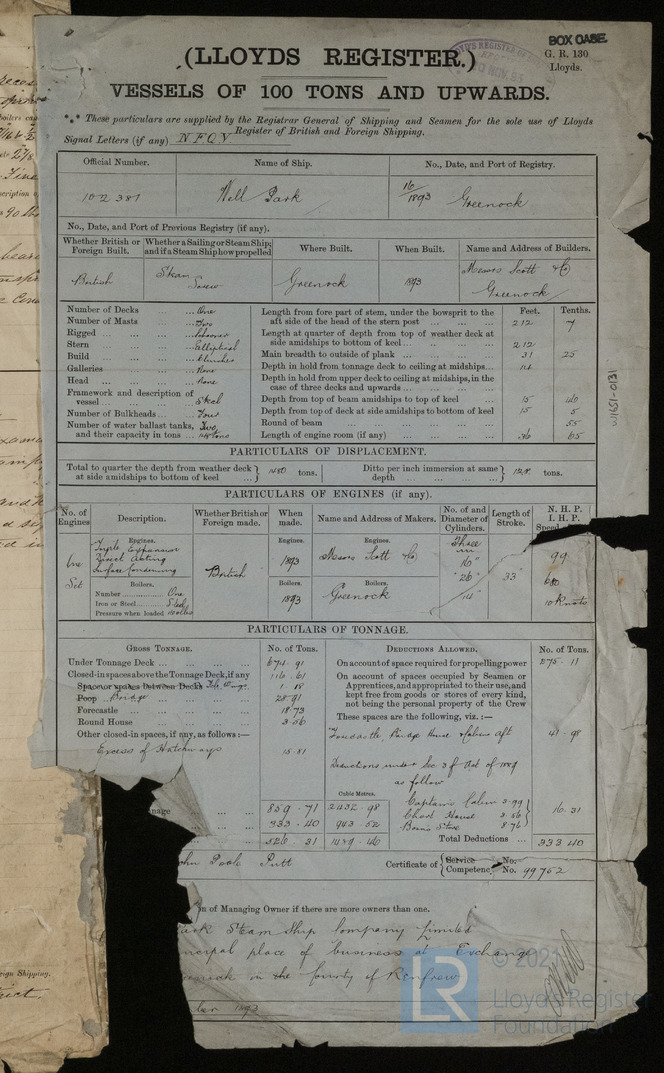 BOX CASE.
(LLOYDS REGISTER.)
G. R. 130
Lloyds.
VESSELS OF 100 TONS AND UPWARDS.
*⁎* These particulars are supplied by the Registrar General of Shipping and Seamen for the sole use of Lloyds
Register of British and Foreign Shipping.
Signal Letters (if any) NFQV
Official Number. Name of Ship. No., Date, and Port of Registry.
102381 Well Park 16/1893 Greenock
No., Date, and Port of Previous Registry (if any).
Whether British or Foreign Built. Whether a Sailing or Steam Ship; and if a Steam Ship how propelled Where Built. When Built. Name and Address of Builders.
British Steam Screw Greenock 1893 Messrs Scott & Co Greenock
Feet. Tenths.
Number of Decks ... One
Number of Masts ... Two
Rigged ... Schooner
Stern ... Elliptical
Build ... Clincher
Galleries ... None
Head ... None
Framework and description of vessel ... Steel
Number of Bulkheads ... Four
Number of water ballast tanks, Two
and their capacity in tons ... tons
Length from fore part of stem, under the bowsprit to the
aft side of the head of the stern post ... 212 7
Length at quarter of depth from top of weather deck at
side amidships to bottom of keel ... 212
Main breadth to outside of plank ... 31 25
Depth in hold from tonnage deck to ceiling at midships ... 14
Depth in hold from upper deck to ceiling at midships, in the
case of three decks and upwards ...
Depth from top of beam amidships to top of keel ... 15 40
Depth from top of deck at side amidships to bottom of keel 15 5
Round of beam ... 55
Length of engine room (if any) ... 36 65
PARTICULARS OF DISPLACEMENT.
Total to quarter the depth from weather deck at side amidships to bottom of keel } 1480 tons. Ditto per inch immersion at same depth } tons.
PARTICULARS OF ENGINES (if any).
No. of Engines Description. Whether British or Foreign made. When made. Name and Address of Makers. No. of and Diameter of Cylinders. Length of Stroke. N. H. P. I. H. P. Speed
Engines. Engines. Engines. Three
One Set Triple Expansion
Direct Acting
Surface Condensing
British 1893 Messrs Scott & Co 16" 26" 33" 99
Boilers. Boilers. Boilers.
Number One
Iron or Steel Steel
Pressure when loaded 160 lbs
1893 Greenock 680
10 Knots
PARTICULARS OF TONNAGE.
GROSS TONNAGE. No. of Tons. DEDUCTIONS ALLOWED. No. of Tons.
Under Tonnage Deck ... 674 . 91
Closed-in spaces above the Tonnage Deck, if any 116 . 61
Space or spaces between Decks 1 . 18
Poop Bridge 28 . 91
Forecastle ... 18 . 73
Round House ... 3 . 56
Other closed-in spaces, if any, as follows:—
Excess of Hatchways 15 81
On account of space required for propelling power 275 . 11
On account of spaces occupied by Seamen or
Apprentices, and appropriated to their use, and
kept free from goods or stores of every kind,
not being the personal property of the Crew
These spaces are the following, viz.:—
Forecastle, Bridge House & Cabins aft 41 . 98
Deductions under Sec 3 of Act of 1889
as follow
Captains Cabin 3.99
Chart House 3.56
Bosns Store 8.76
16 . 31
Cubic Metres.
nage ... 859 . 71 2432 . 98
333 . 40 943 . 52
526 . 31 1489 . 46
Total Deductions ... 333 40
ohn Poole Putt
Certificate of { Service No.
Competency No. 99752
n of Managing Owner if there are more owners than one.
Steam Ship Company Limited
ncipal place of business at Exchange
in the County of Renfrew
1893
© 2021
LR
Lloyd's Register
Foundation